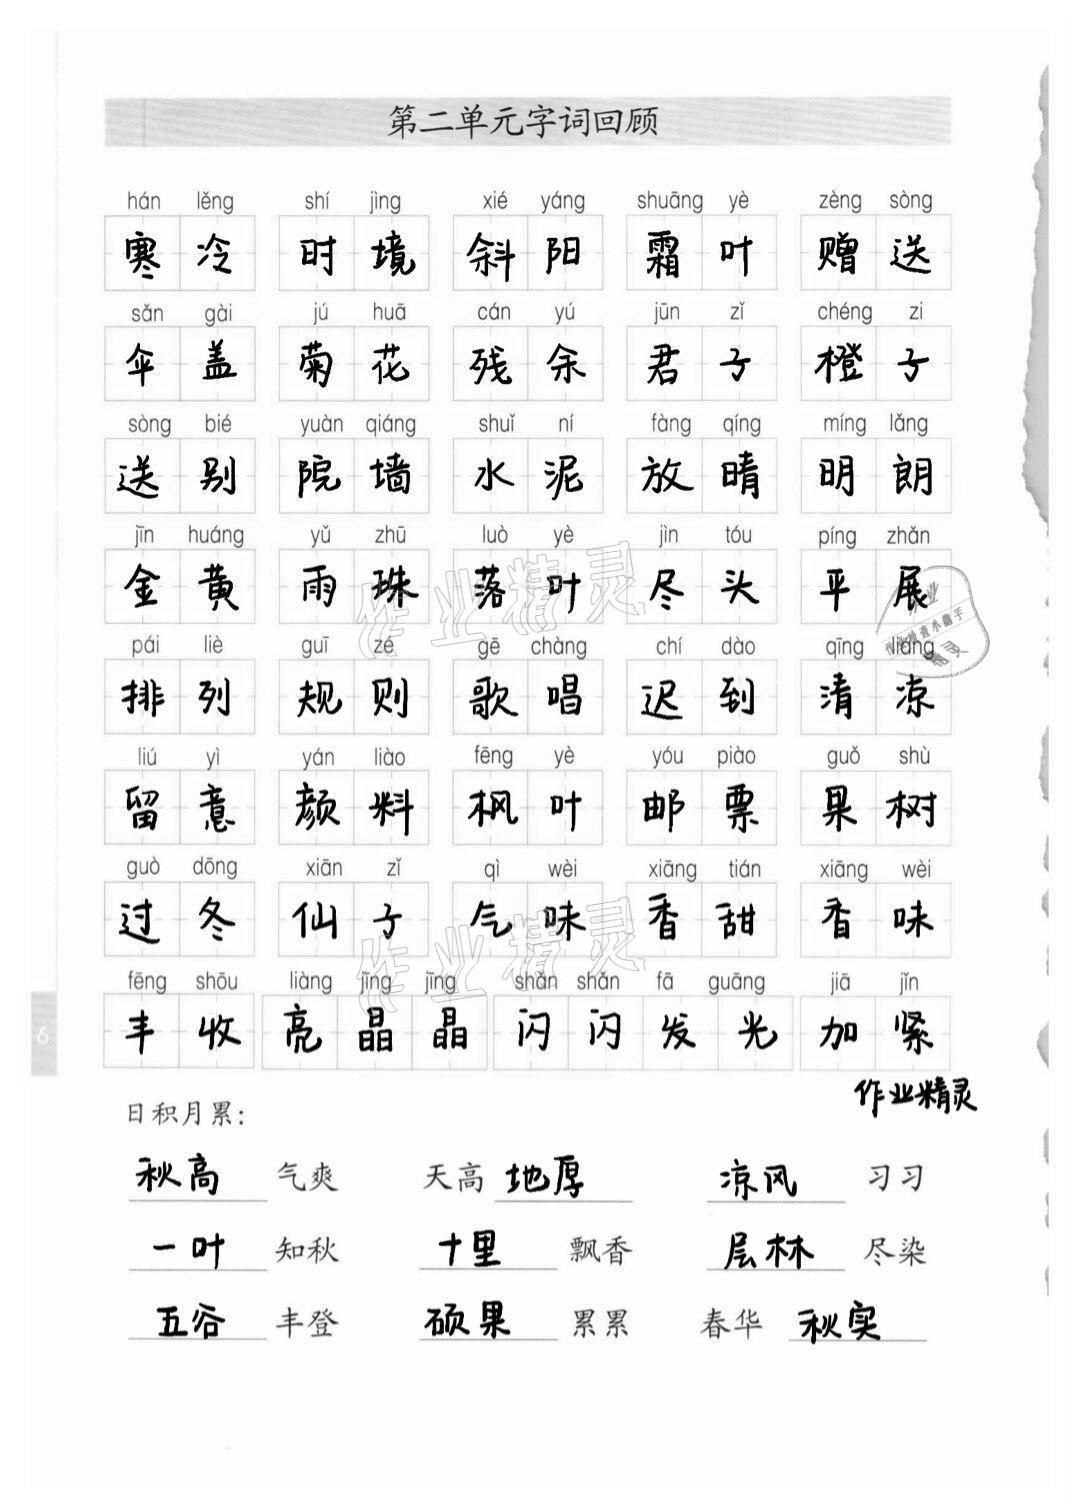 第二单元字词回顾
hán lěng shí jìng xié yáng shuāng yè zèng sòng
寒冷 时境 斜阳 霜叶 赠送
sǎn gài jú huā cán yú jūn zǐ chéng zi
伞盖 菊花 残余 君子 橙子
sòng bié yuàn qiáng shuǐ ní fàng qíng míng lǎng
送别 院墙 水泥 放晴 明朗
jīn huáng yǔ zhū luò yè jìn tóu píng zhǎn
金黄 雨珠 落叶 尽头 平展
pái liè guī zé gē chàng chí dào qīng liáng
排列 规则 歌唱 迟到 清凉
liú yì yán liào fēng yè yóu piào guǒ shù
留意 颜料 枫叶 邮票 果树
guò dōng xiān zǐ qì wèi xiāng tián xiāng wèi
过冬 仙子 气味 香甜 香味
fēng shōu liàng jīng jīng shǎn shǎn fā guāng jiā jǐn
丰收 亮晶晶 闪闪发光 加紧
作业精灵
日积月累:
秋高气爽 天高地厚 凉风习习
一叶知秋 十里飘香 层林尽染
五谷丰登 硕果累累 春华秋实
6
作业精灵
作业精灵